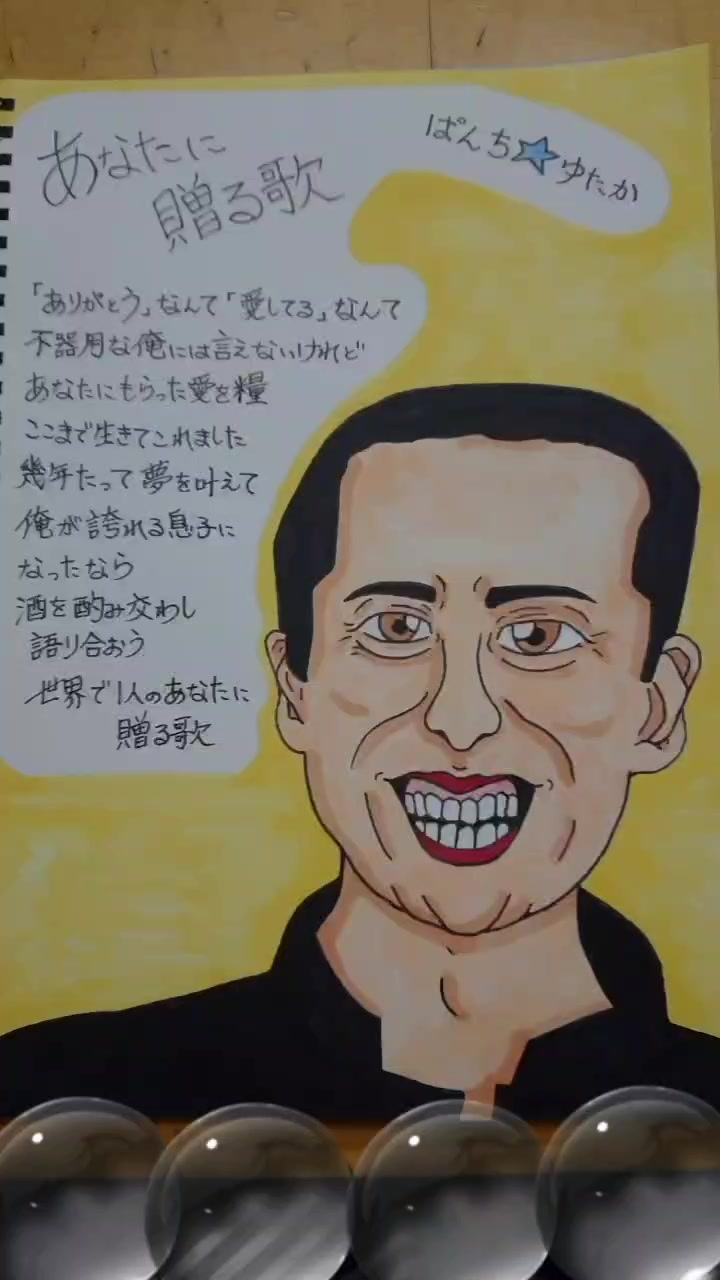 あなたに
贈る歌
ぱんち☆ゆたか
「ありがとう」なんて「愛してる」なんて
不器用な俺には言えないけれど
あなたにもらった愛を糧
ここまで生きてこれました
幾年たって夢を叶えて
俺が誇れる息子に
なったなら
酒を酌み交わし
語り合おう
世界で1人のあなたに
贈る歌